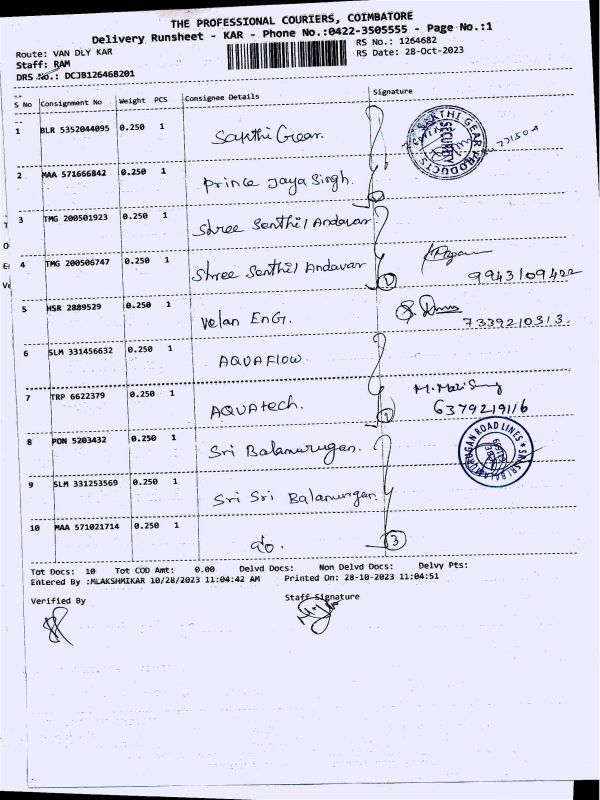 THE PROFESSIONAL COURIERS, COIMBATORE
Delivery Runsheet - KAR - Phone No.:0422-3505555 - Page No.:1
Route: VAN DLY KAR
RS No.: 1264682
Staff: RAM
RS Date: 28-Oct-2023
DRS No.: DCJB126468201
S No Consignment No Weight PCS Consignee Details Signature
1 BLR 5352044095 0.250 1 Sakthi Gear.
SAKTHI GEAR PRODUCTS
SECURITY
2 MAA 571666842 0.250 1 Prince Jaya Singh.
3 TMG 200501923 0.250 1 Shree Senthil Andavar
4 TMG 200506747 0.250 1 Shree Senthil Andavar
9943109422
5 HSR 2889529 0.250 1 Velan EnG.
7339210313.
6 SLM 331456632 0.250 1 AQUAFLOW.
7 TRP 6622379 0.250 1 AQUAtech.
6379219116
8 PON 5203432 0.250 1 Sri Balamurugan.
9 SLM 331253569 0.250 1 Sri Sri Balamurugan
10 MAA 571021714 0.250 1 do. 3
Tot Docs: 10 Tot COD Amt: 0.00 Delvd Docs: Non Delvd Docs: Delvy Pts:
Entered By :MLAKSHMIKAR 10/28/2023 11:04:42 AM Printed On: 28-10-2023 11:04:51
Verified By Staff Signature